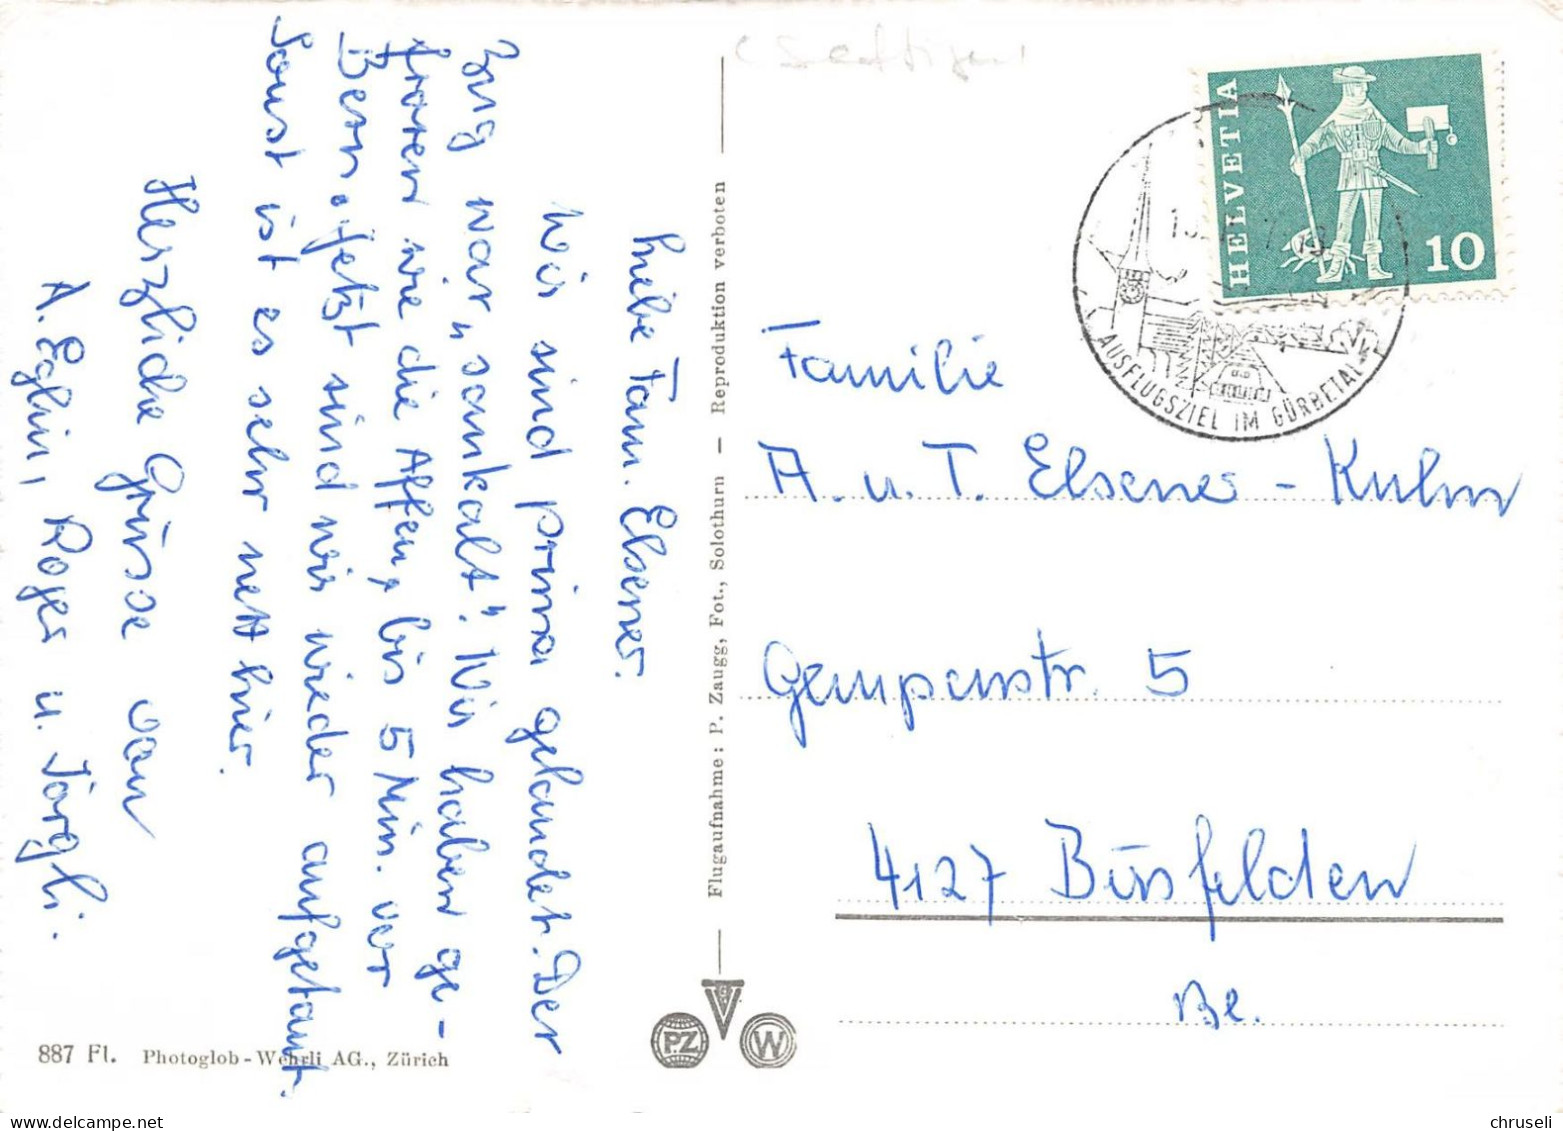 Liebe Fam. Elsener.
Wir sind prima gelandet. Der
Zug war „saukalt". Wir haben ge-
froren wie die Affen, bis 5 Min. vor
Bern. Jetzt sind wir wieder aufgetaut.
Sonst ist es sehr nett hier.
Herzliche Grüsse von
A. Eglin, Roger u. Jörgli.
887 Fl. Photoglob-Wehrli AG., Zürich
Flugaufnahme: P. Zaugg, Fot., Solothurn — Reproduktion verboten
G
V
PZ
W
(Seftigen)
HELVETIA
10
AUSFLUGSZIEL IM GÜRBETAL
Familie
A. u. T. Elsener - Kulm
Gempenstr. 5
4127 Birsfelden
Be.
chruseli